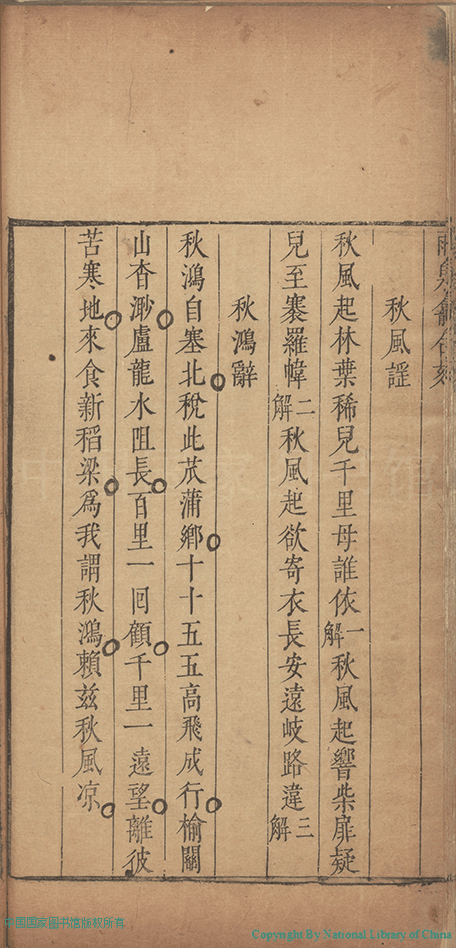 秋風謡
秋風起林葉稀兒千里母誰依一解秋風起響柴扉疑
兒至褰羅幃二解秋風起欲寄衣長安遠岐路違三解
秋鴻辭
秋鴻自塞北稅此苽蒲鄉十十五五高飛成行榆關
山杳渺盧龍水阻長百里一回顧千里一遠望離彼
苦寒地來食新稻梁爲我謂秋鴻賴兹秋風凉
中国国家图书馆版权所有
Copyright By National Library of China